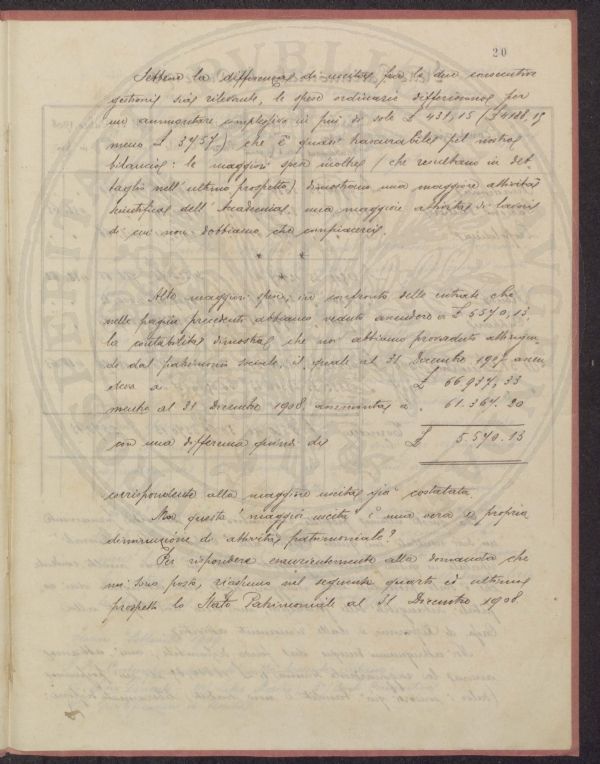 20
Sebbene la differenza di uscita fra le due consecutive
gestioni sia rilevante, le spese ordinarie differiscono per
un ammontare complessivo in più di sole £ 431,15 (£ 4188,15
meno £. 3757) che è quasi trascurabile pel nostro
bilancio: le maggiori spese inoltre (che risultano in det
taglio nell'ultimo prospetto) dimostrano una maggiore attività
scientifica dell'Accademia, una maggiore attività di lavori
di cui non dobbiamo che compiacerci.
* *
*
Alle maggiori spese, in confronto delle entrate che
nella pagina precedente abbiamo veduto ascendere a £ 5570,13
la contabilità dimostra che noi abbiamo provveduto attingen
do dal patrimonio sociale, il quale al 31 Dicembre 1907 ascen
deva a £ 66,937,33
mentre al 31 Dicembre 1908 ammonta a . 61.367.20
con una differenza quindi di £ 5.570.13
corrispondente alla maggiore uscita già constatata.
Ma questa "maggior uscita" è una vera e propria
diminuzione di attività patrimoniale?
Per rispondere alla domanda che
mi sono posta, riassumo nel seguente quarto ed ultimo
prospetto lo Stato Patrimoniale al 31 Dicembre 1908